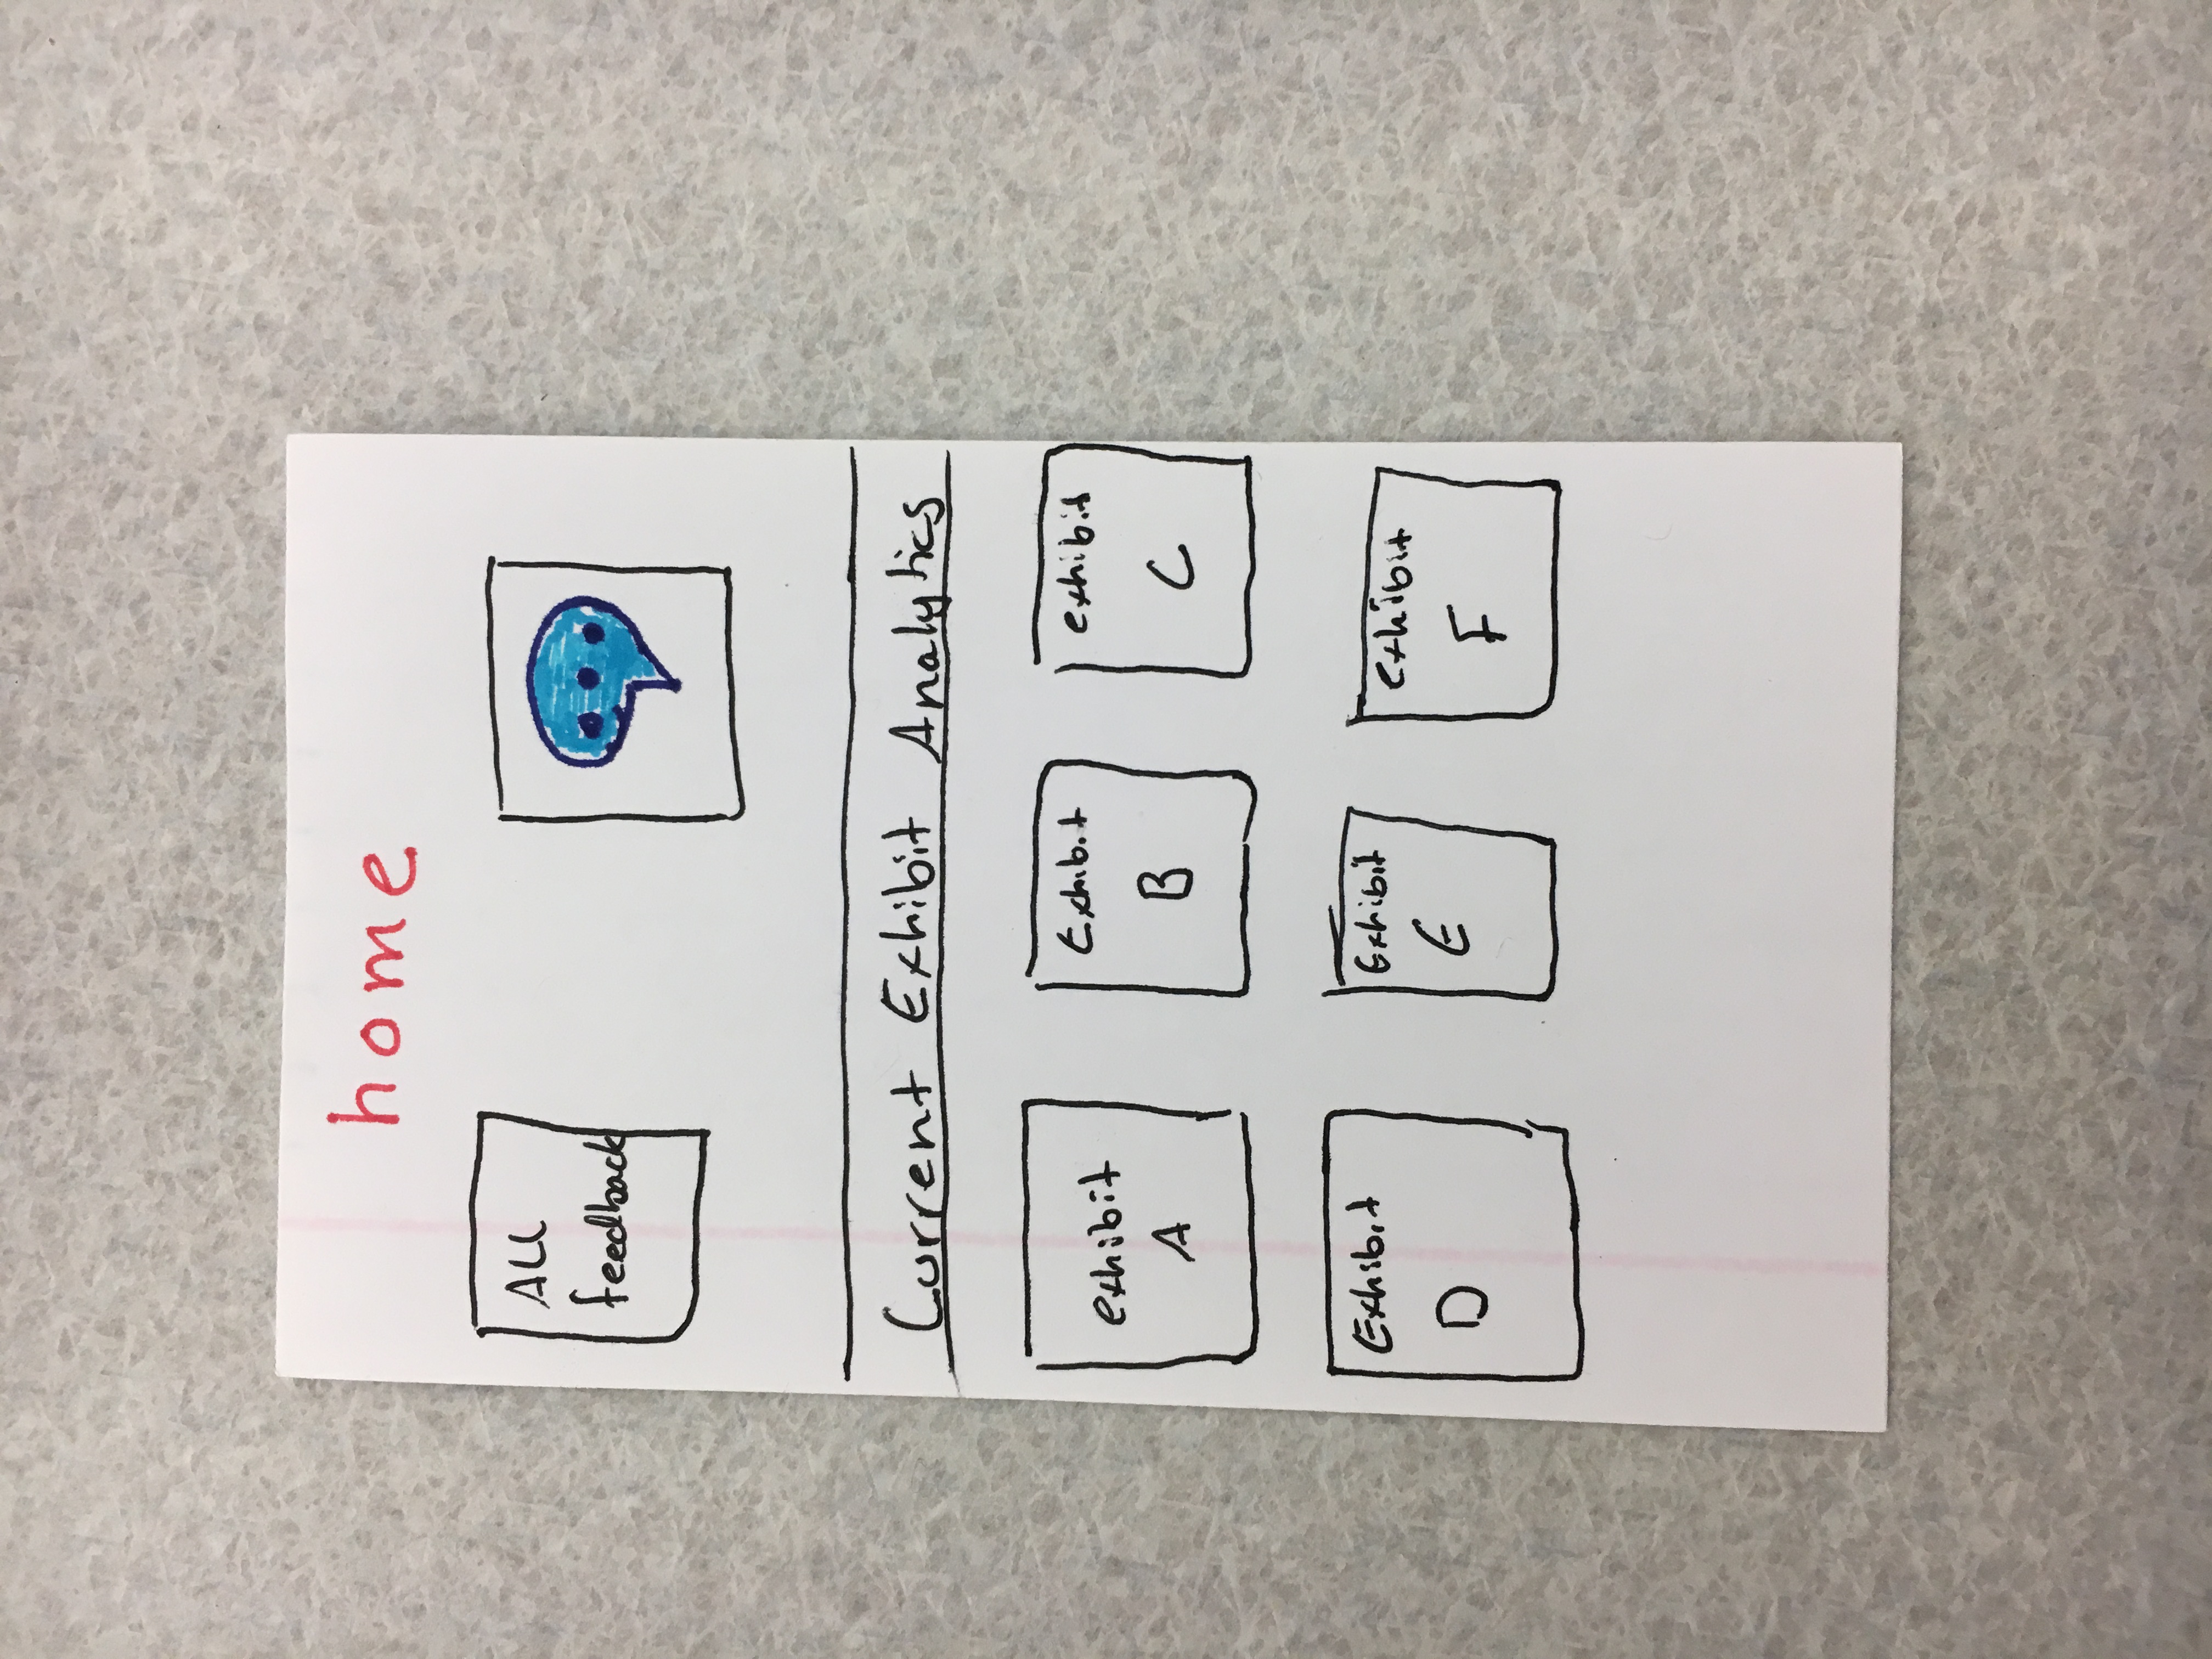 home
ALL
feedback
Current Exhibit Analytics
exhibit
A
Exhibit
B
exhibit
C
Exhibit
D
Exhibit
E
exhibit
F